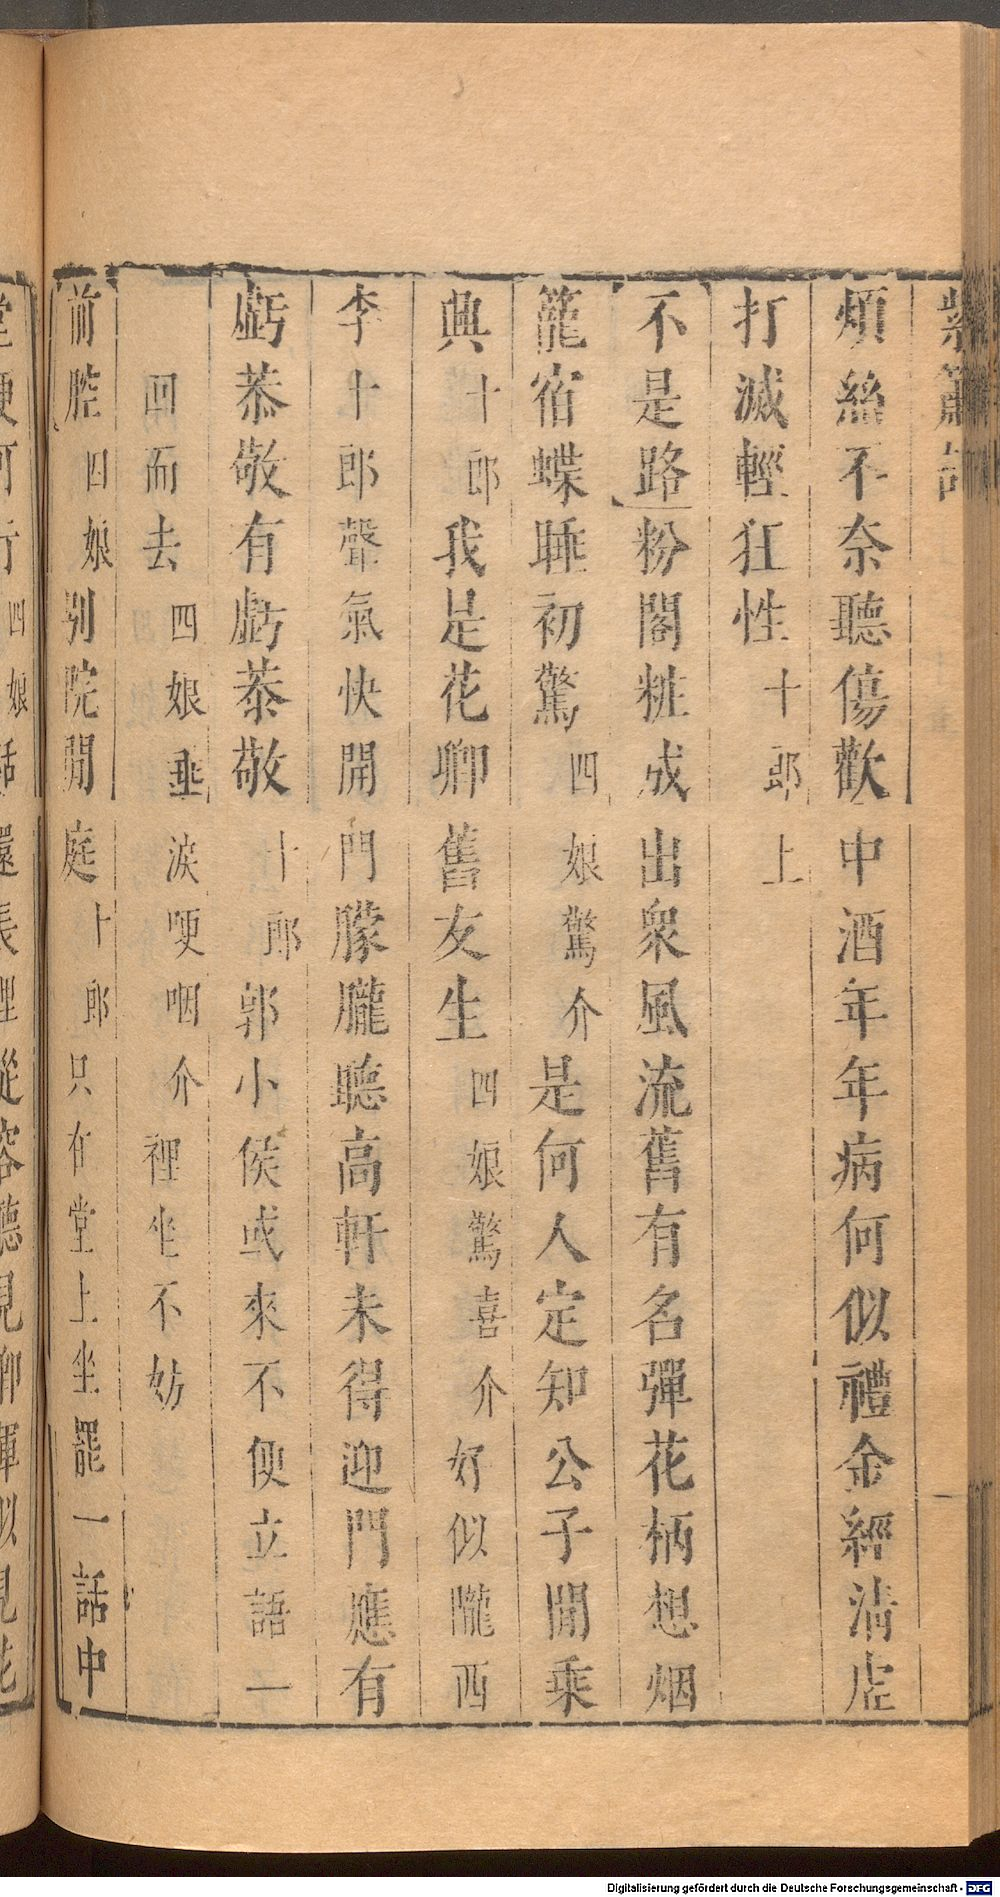 紫簫記
煩絲不奈聽傷歡中酒年年病何似禮金經清虛
打滅輕狂性十郎上
不是路粉閣粧成出衆風流舊有名彈花柄想烟
籠宿蝶睡初驚四娘驚介是何人定知公子閒乘
興十郎我是花卿舊友生四娘驚喜介好似隴西
李十郎聲氣快開門朦朧聽高軒未得迎門應有
虧恭敬有虧恭敬十郎郭小侯或來不便立語一
回而去四娘垂淚哽咽介裡坐不妨
前腔四娘別院閒庭十郎只在堂上坐罷一話中
堂便可行四娘話還長裡從容聽見卿渾似見花
Digitalisierung gefördert durch die Deutsche Forschungsgemeinschaft - DFG